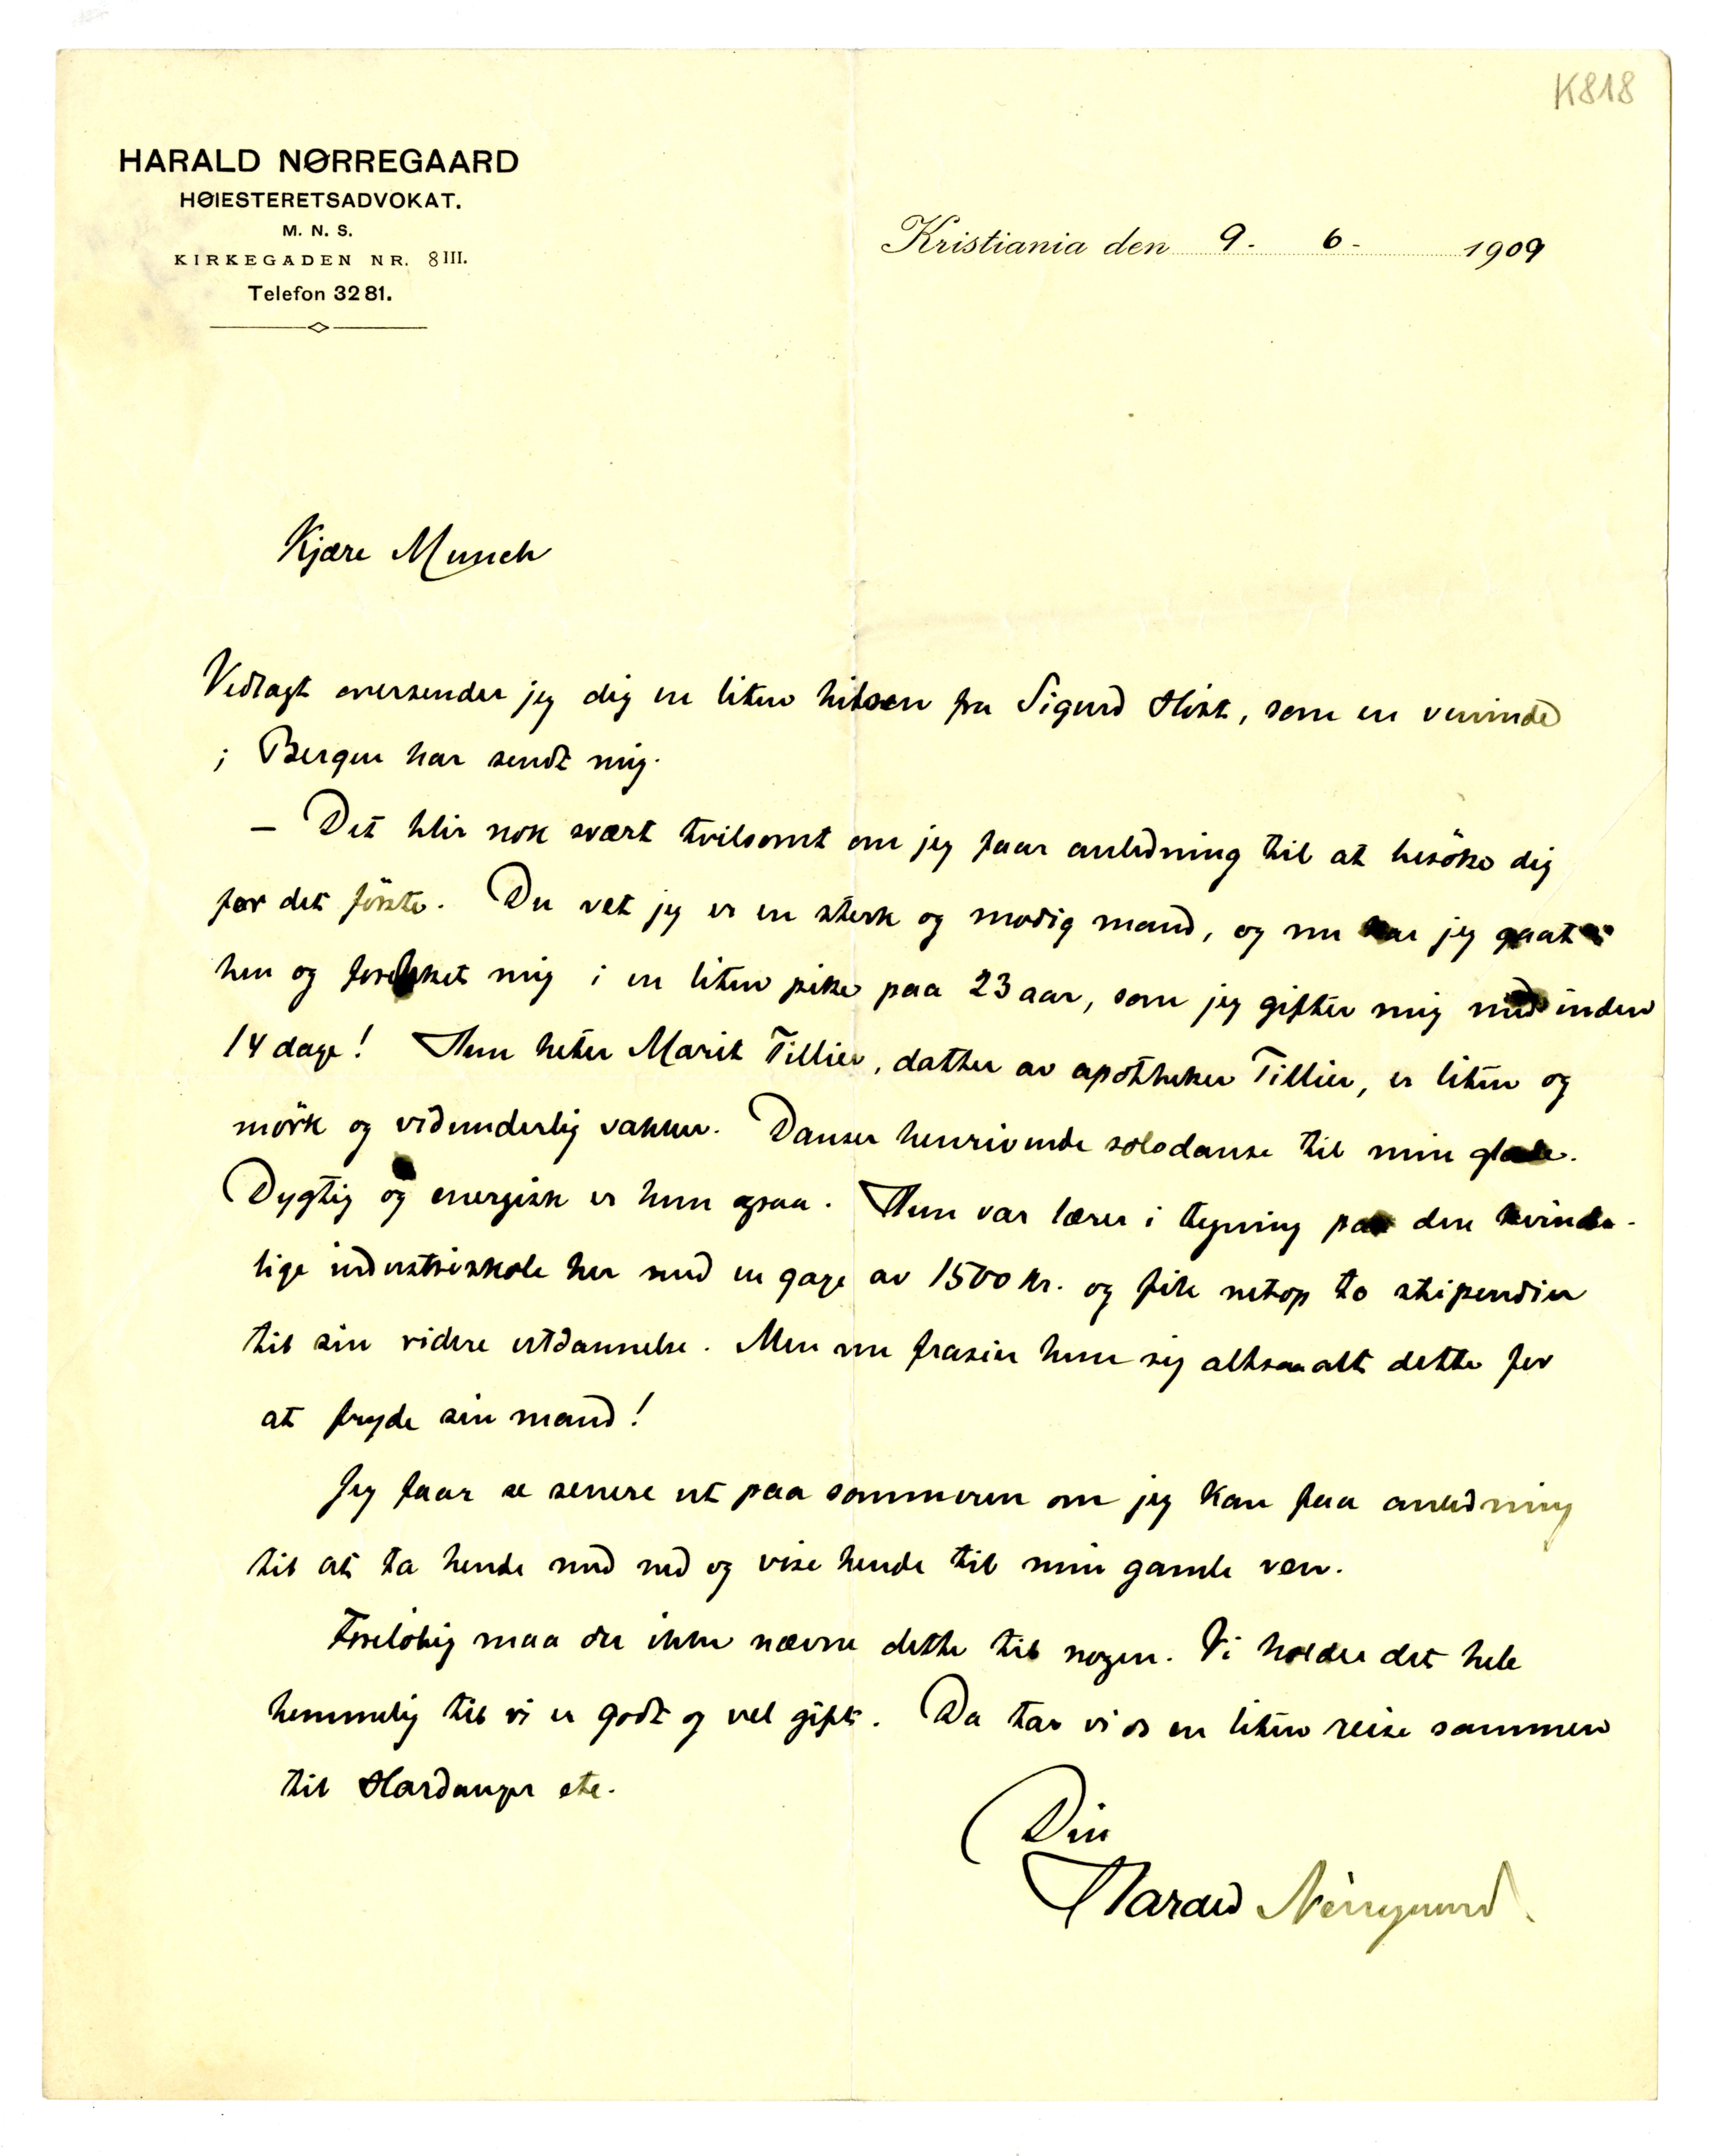 K818
HARALD NØRREGAARD
HØIESTERETSADVOKAT.
M. N. S.
KIRKEGADEN NR. 8 III.
Telefon 3281.
Kristiania den 9. 6- 1909
Kjære Munch
Vedlagt oversender jeg dig en liten hilsen fra Sigurd Høst, som en veninde
i Bergen har sendt mig.
– Det blir nok svært tvilsomt om jeg faar anledning til at besöke dig
for det förste. Du vet jeg er en sterk og modig mand, og nu har jeg gaat
hen og forelsket mig i en liten pike paa 23 aar, som jeg gifter mig med inden
14 dage! Hun heter Marit Tillier, datter av apotheker Tillier, er liten og
mörk og vidunderlig vakker. Danser henrivende solodanse til min glæde.
Dygtig og energisk er hun ogsaa. Hun var lærer i tegning paa den kvinde-
lige industriskole her med en gage av 1500 kr. og fik netop to stipendier
til sin videre utdannelse. Men nu frasier hun sig altsaa alt dette for
at fryde sin mand!
Jeg faar se senere ut paa sommeren om jeg kan faa anledning
til at ta hende med ned og vise hende til min gamle ven.
Forelöbig maa du ikke nævne dette til nogen. Vi holder det hele
hemmelig til vi er godt og vel gift. Da tar vi os en liten reise sammen
til Hardanger etc.
Din
Harald Nörregaard.